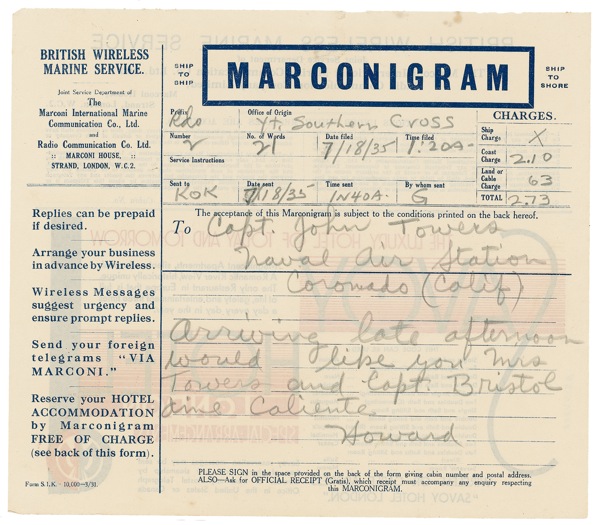 BRITISH WIRELESS
MARINE SERVICE.
Joint Service Department of
The
Marconi International Marine
Communication Co., Ltd.
and
Radio Communication Co. Ltd.
:: MARCONI HOUSE, ::
STRAND, LONDON, W.C.2.
Replies can be prepaid
if desired.
Arrange your business
in advance by Wireless.
Wireless Messages
suggest urgency and
ensure prompt replies.
Send your foreign
telegrams "VIA
MARCONI."
Reserve your HOTEL
ACCOMMODATION
by Marconigram
FREE OF CHARGE
(see back of this form).
Form S.1.K. - 10,000—3/30.
SHIP
TO
SHIP
MARCONIGRAM
SHIP
TO
SHORE
Prefix Rdo
Office of Origin Yt. Southern Cross
CHARGES.
Number 2
No. of Words 21
Date filed 7/18/35
Time filed 1:20A-
Ship Charge X
Service Instructions
Coast Charge 2.10
Land or Cable Charge 63
Sent to KOK
Date sent 7/18/35
Time sent 1N40A.
By whom sent G
TOTAL 2.73
The acceptance of this Marconigram is subject to the conditions printed on the back hereof.
To Capt. John Towers
Naval Air Station
Coronado (Calif)
Arriving late afternoon
would like you Mrs
Towers and Capt. Bristol
dine Caliente
Howard
PLEASE SIGN in the space provided on the back of form giving cabin number and postal address.
ALSO—Ask for OFFICIAL RECEIPT (Gratis), which receipt must accompany any enquiry respecting
this MARCONIGRAM.